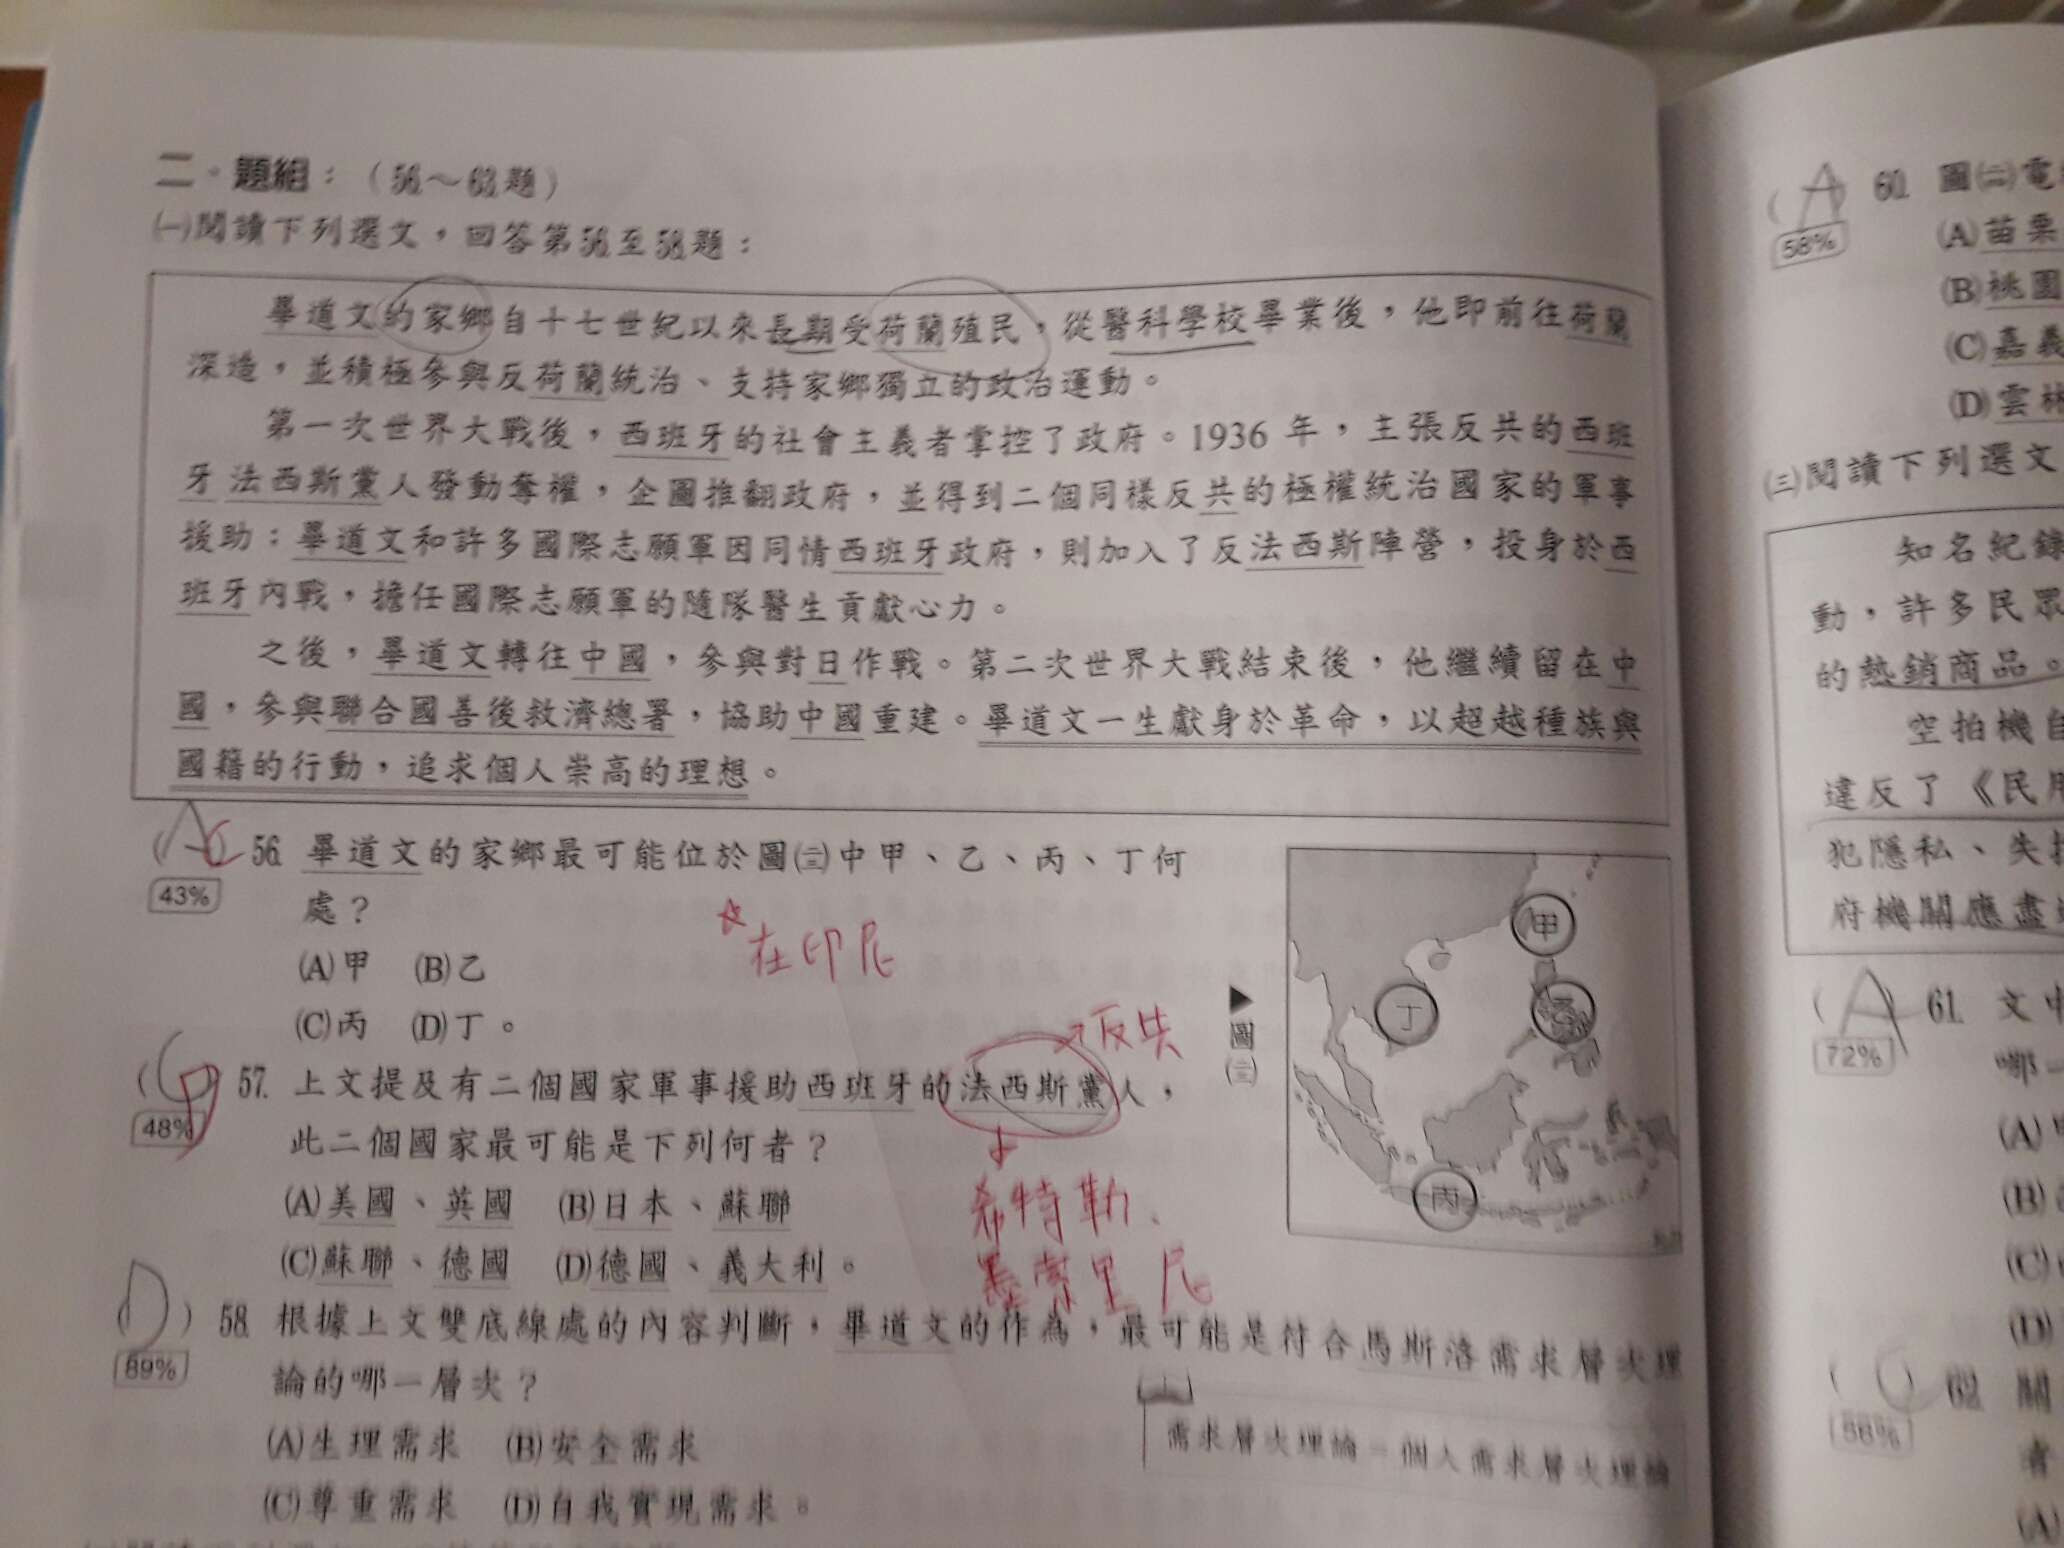 二、題組：（56～63題）
㈠閱讀下列選文，回答第56至58題：
畢道文的家鄉自十七世紀以來長期受荷蘭殖民，從醫科學校畢業後，他即前往荷蘭
深造，並積極參與反荷蘭統治、支持家鄉獨立的政治運動。
第一次世界大戰後，西班牙的社會主義者掌控了政府。1936年，主張反共的西班
牙法西斯黨人發動奪權，企圖推翻政府，並得到二個同樣反共的極權統治國家的軍事
援助；畢道文和許多國際志願軍因同情西班牙政府，則加入了反法西斯陣營，投身於西
班牙內戰，擔任國際志願軍的隨隊醫生貢獻心力。
之後，畢道文轉往中國，參與對日作戰。第二次世界大戰結束後，他繼續留在中
國，參與聯合國善後救濟總署，協助中國重建。畢道文一生獻身於革命，以超越種族與
國籍的行動，追求個人崇高的理想。
(A C 56. 畢道文的家鄉最可能位於圖㈢中甲、乙、丙、丁何
43%
處？
☆在印尼
(A)甲 (B)乙
(C)丙 (D)丁。
甲
乙
丁
丙
▶圖㈢
→反共
(C D 57. 上文提及有二個國家軍事援助西班牙的法西斯黨人，
48%
此二個國家最可能是下列何者？
(A)美國、英國 (B)日本、蘇聯
(C)蘇聯、德國 (D)德國、義大利。
希特勒、
墨索里尼
(D) 58. 根據上文雙底線處的內容判斷，畢道文的作為，最可能是符合馬斯洛需求層次理
89%
論的哪一層次？
(A)生理需求 (B)安全需求
(C)尊重需求 (D)自我實現需求。
需求層次理論＝個人需求層次理論
(A) 60. 圖㈡電
58%
(A)苗栗
(B)桃園
(C)嘉義
(D)雲林
㈢閱讀下列選文
知名紀錄
動，許多民眾
的熱銷商品。
空拍機自
違反了《民用
犯隱私、失
府機關應盡
(A) 61. 文中
72%
哪一
(A)
(B)
(C)
(D)
(C) 62. 關
58%
者
(A)